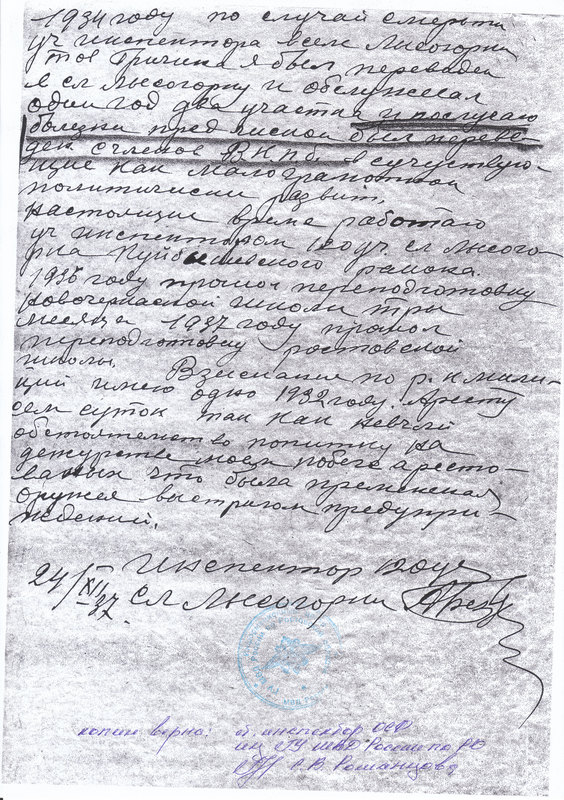 1934 году по случай смерти
уч инспектора всем Лысогорки
тов Гричина я был переведен
в сл Лысогорку и обслуживал
один год два участка и послучаю
болезни пред чисткой был переве-
ден с членов ВКПб. в сучуствую-
щие как малограмотной
политически развит,
настоящие время работаю
уч инспектором 120 уч. сл Лысого-
рка Куйбышевского района.
1936 году прошол переподготовку
Новочеркаской школи тры
месяца 1937 году прошол
переподготовку ростовской
школы. Взискания по р. к мили-
ции имею одно 1932 году. Аресту
сем суток так как
обстоятелство попитку на
дежурстве моем побега аресто-
ваных что была применена
оружея выстрелом предупри-
ждений.
Инспектор 120 уч
24/XII 37. Сл Лысогорки
копия верна: ст. инспектор ОСФ
ИЦ ГУ МВД России по РО
С.В. Романцова